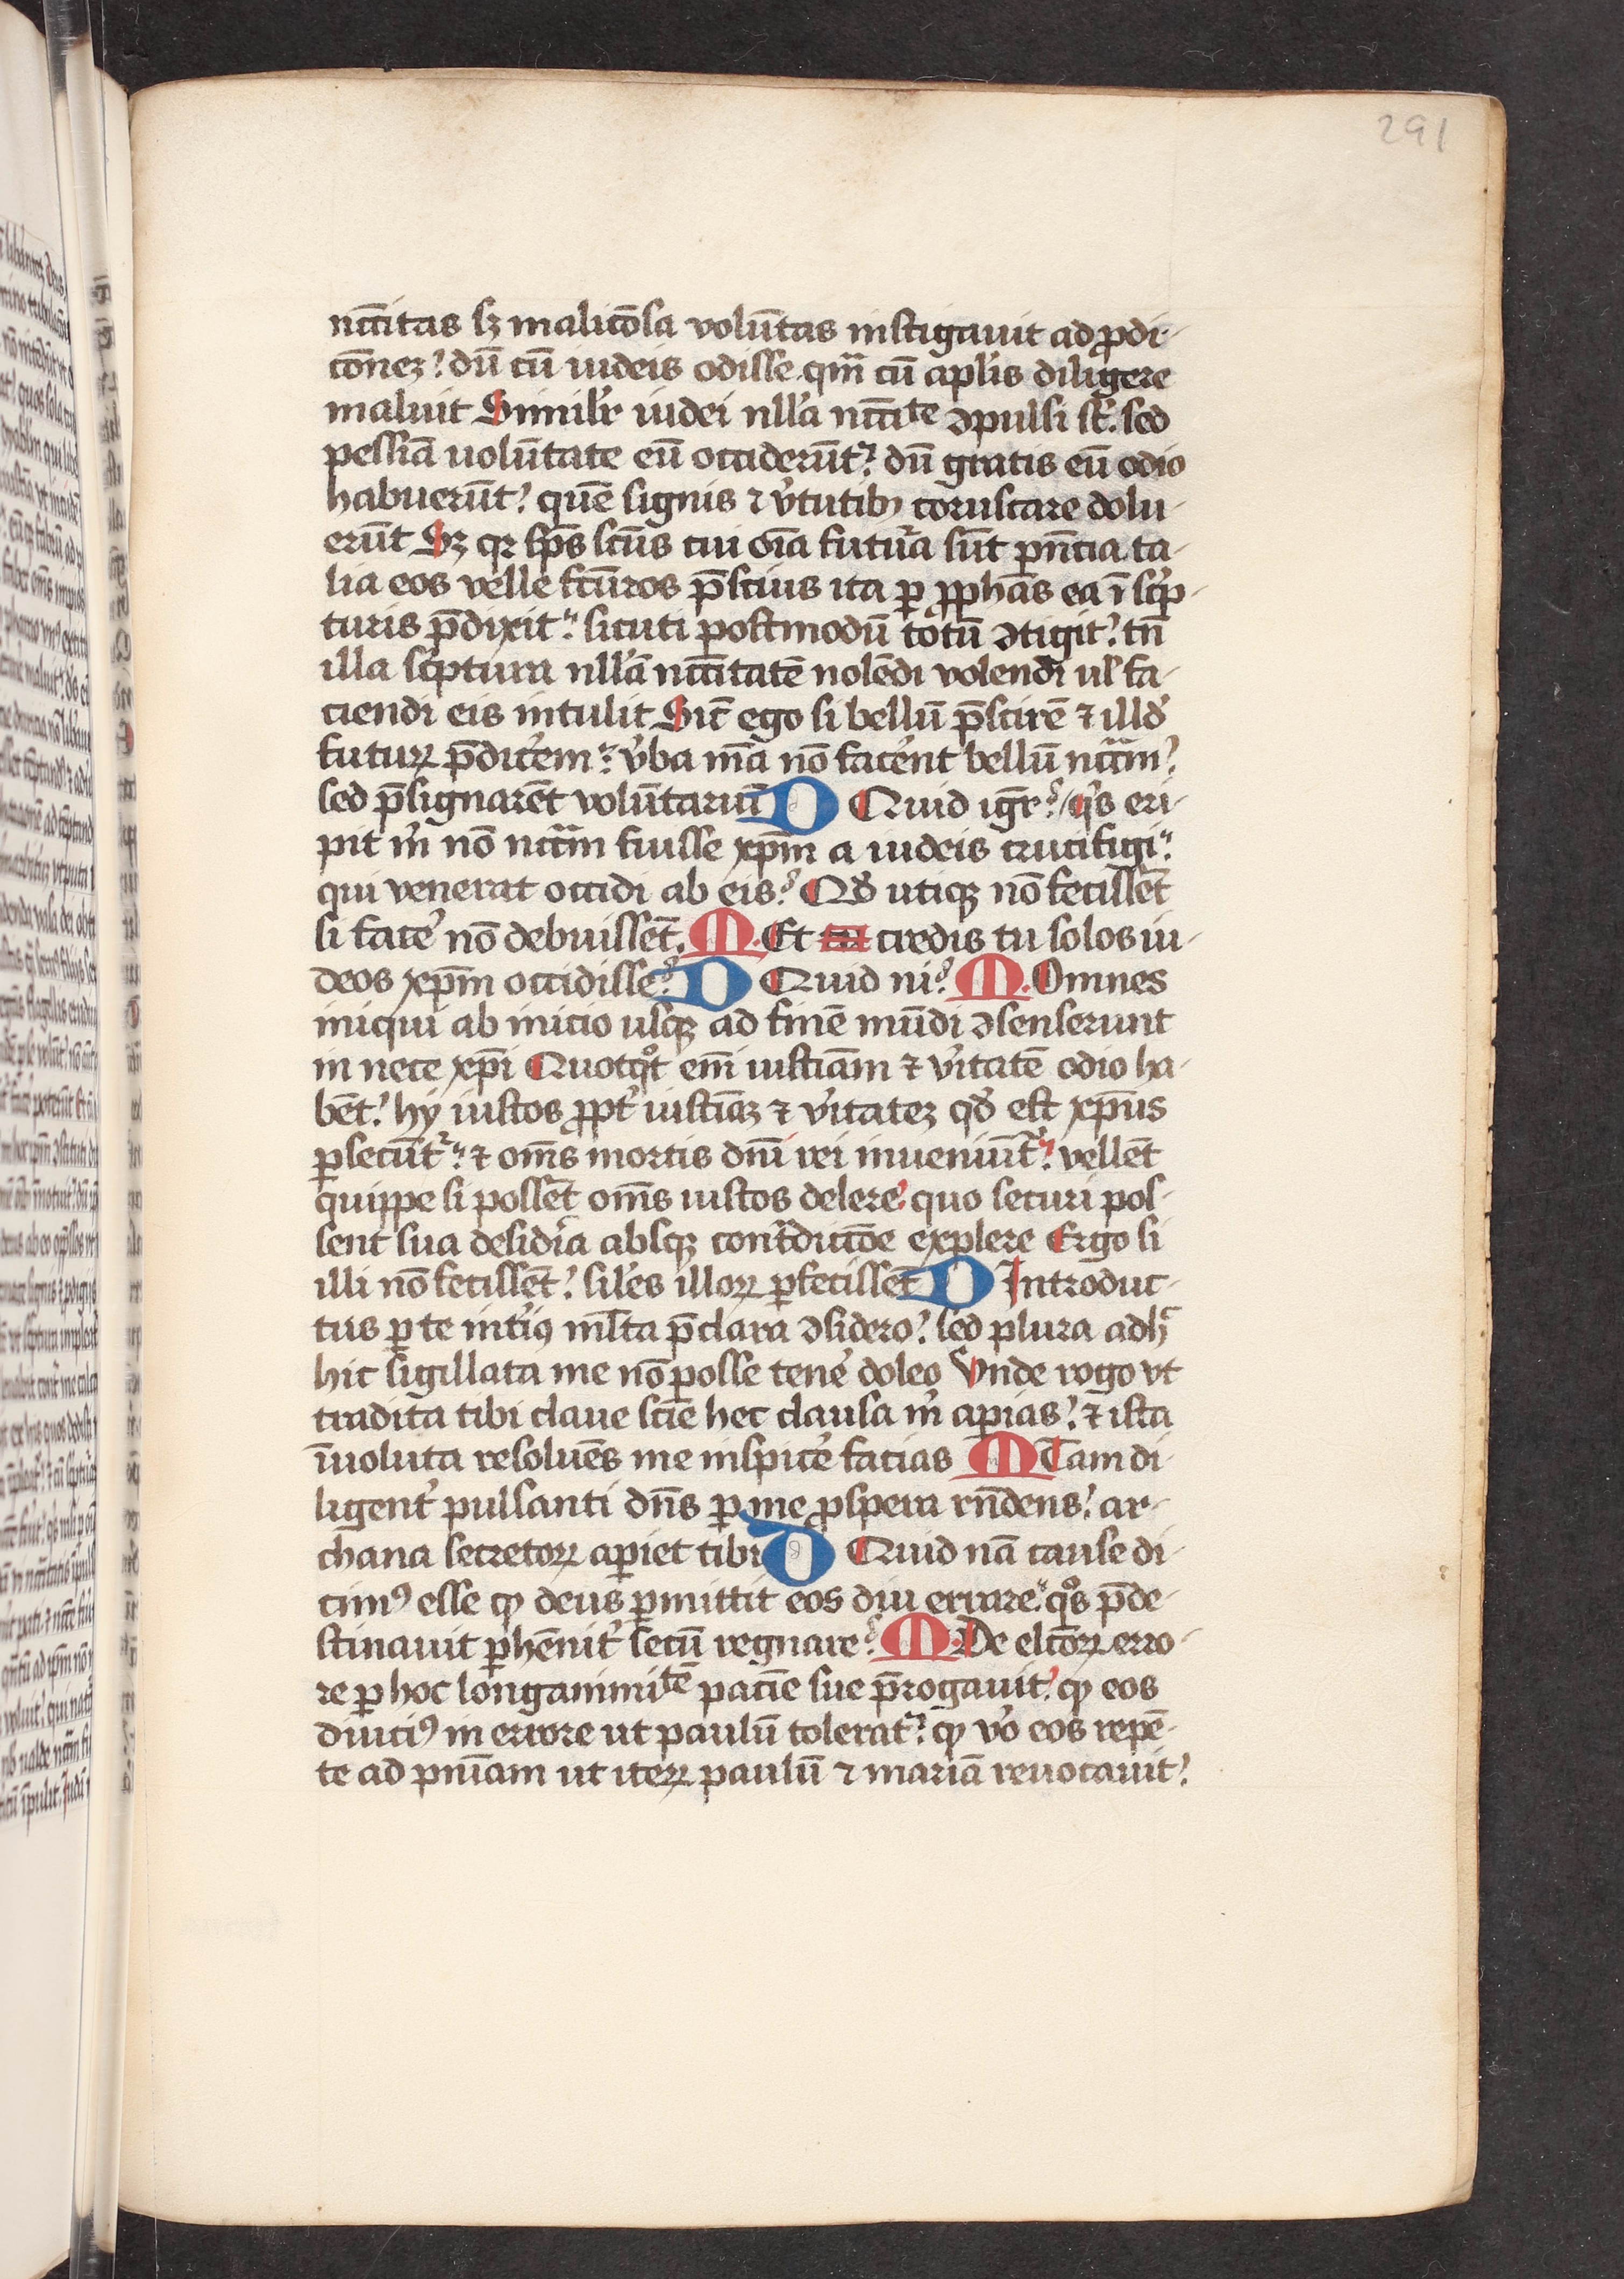 291
nc̄citas sꝫ malicōsa volūtas instigauit ad ꝓdi-
cōneꝫ? dū cū iudeis odisse qm̄ cū aplīs diligere
maluit Similr̄ iudei nlla ncc̄ite ꝯpulsi st̄. sed
pessiā uolūtate eū occiderūt? dū gratis eū odio
habuerūt? quē signis ⁊ v̾tutibꝫ coruscare dolu-
erūt Sꝫ qꝛ sp̄s sc̄us cui oīa futura sūt pn̄cia ta-
lia eos velle fc̄uros p̄scius ita ꝑ ꝓphās ea ī sc̾p-
turis p̄dixit? sicuti postmodū totū ꝯtigit? tn̄
illa sc̾ptura nllā ncc̄itatē nolēdi volendi ul̾ fa-
ciendi eis intulit Sic̄ ego si bellū p̄scirē ⁊ illd̾
futuꝝ p̄dicerem? v̾ba mea nō facerent bellū ncc̄m?
sed p̄signarēt voluntariū D Quid igr̄? q̾s eri-
pit m̾ nō ncc̄m fuisse xp̄m a iudeis crucifigi?
qui venerat occidi ab eis? Qd̾ utiqꝫ nō fecissēt
si face̾ nō debuissēt. M. Et credis tu solos iu-
deos xp̄m occidisse? D Quid ni? M. Omnes
iniqui ab inicio usqꝫ ad finē mūdi ꝯsenserunt
in nece xp̄i Quotqͦt em̄ iusticiam ⁊ v̾itatē odio ha-
bēt? hÿ iustos ꝓpt̾ iusticiaꝫ ⁊ v̾itateꝫ qd̾ est xp̄us
ꝑsecūt̾? ⁊ om̄s mortis dn̄i rei inueniūt̾? vellēt
quippe si possēt om̄s iustos delere? quo securi pos-
sent sua desid̾ia absqꝫ cont̾dictōe explere Ergo si
illi nō fecissēt? sil̾es illoꝝ ꝑfecissēt D Introduc-
tus ꝑ te int̾iꝰ ml̄ta p̄clara ꝯsidero? sed plura adhͨ
hic sigillata me nō posse tene̾ doleo Vnde rogo vt
tradita tibi claue scīe hec clausa m̾ aꝑias? ⁊ ista
īuoluta resoluēs me inspice̾ facias M Tam di-
ligent̾ pulsanti dn̄s ꝑ me ꝓspera rn̄dens? ar-
chana secretoꝝ aꝑiet tibi D Quid nā cause di-
cimꝰ esse ꝙ deus ꝑmittit eos diu errare? qͦs p̄de-
stinauit ꝑhēnit̾ secū regnare? M. De elc̄oꝝ erro-
re ꝑ hoc longanimitē paciē sue p̄rogauit? ꝙ eos
diuciꝰ in errore ut paulū tolerat? ꝙ vͦ eos repē-
te ad pn̄iam ut iteꝝ paulū ⁊ mariā reuocauit?